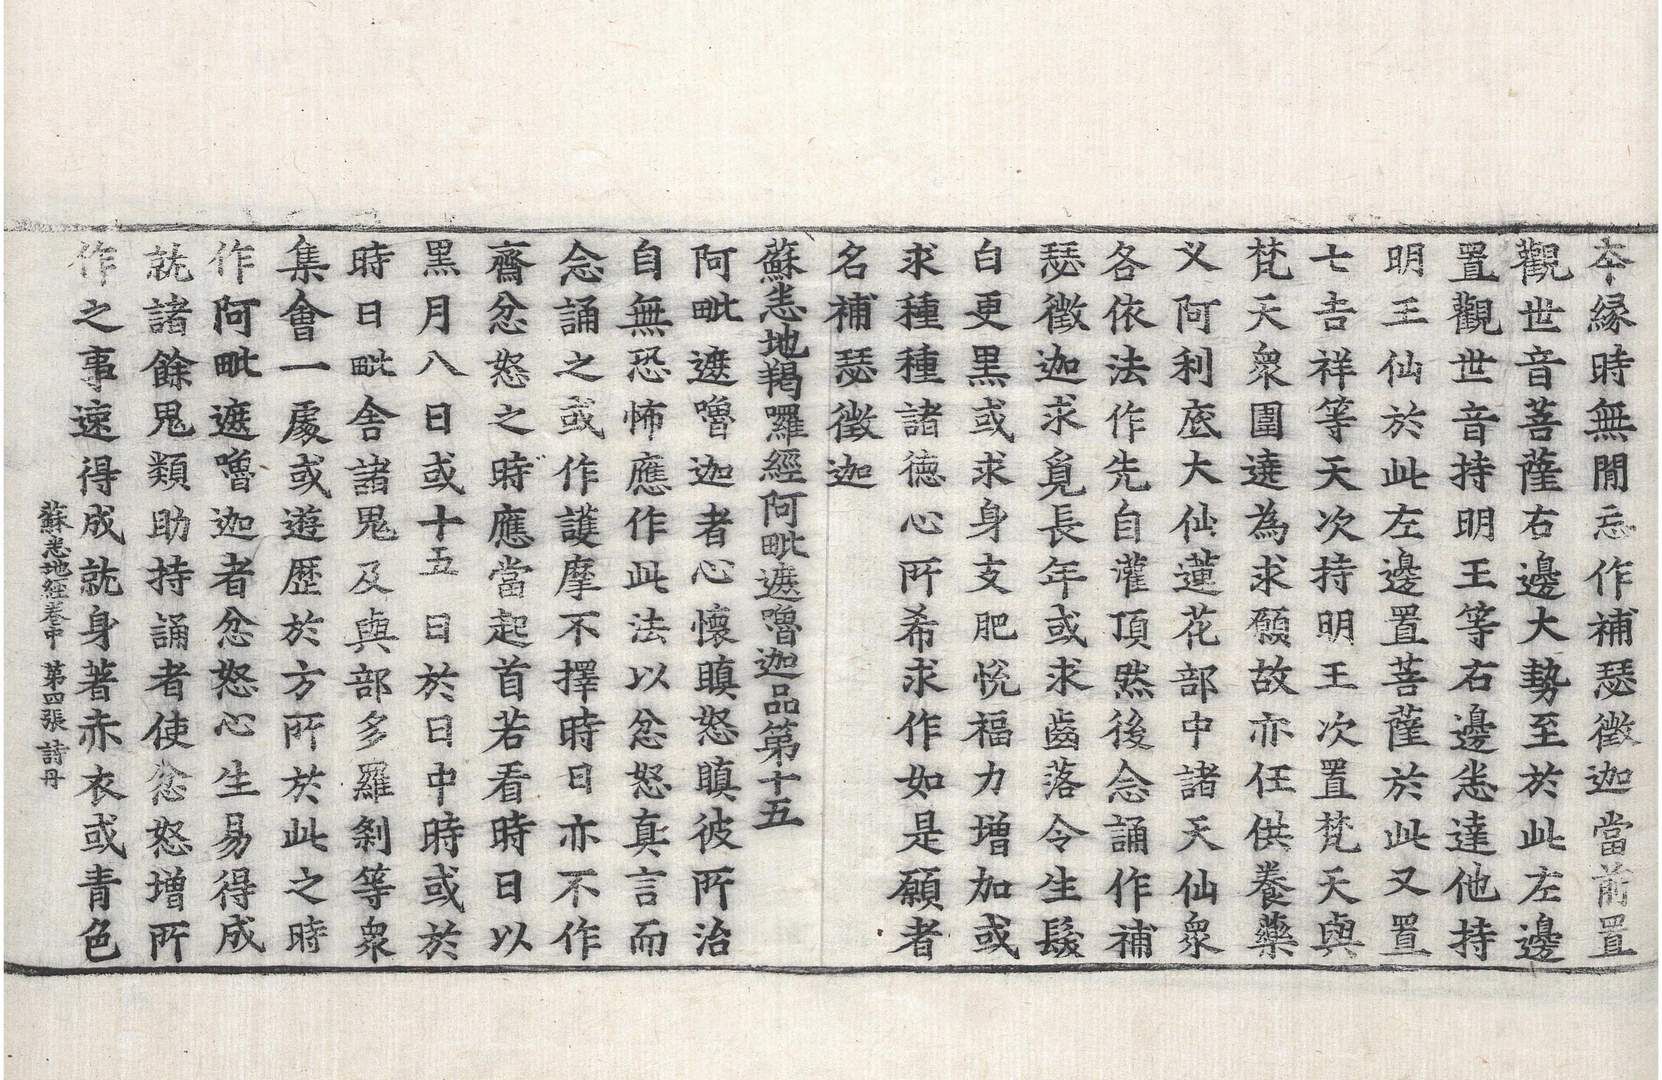 本縁時無閒忘作補瑟徵迦當前置
觀世音菩薩右邊大勢至於此左邊
置觀世音持明王等右邊悉達他持
明王仙於此左邊置菩薩於此又置
七吉祥等天次持明王次置梵天與
梵天衆圍遶為求願故亦任供養藥
义阿利底大仙蓮花部中諸天仙衆
各依法作先自灌頂然後念誦作補
瑟徵迦求覓長年或求齒落令生髮
白更黑或求身支肥恱福力增加或
求種種諸德心所希求作如是願者
名補瑟徵迦
蘇悉地羯囉經阿毗遮嚕迦品第十五
阿毗遮嚕迦者心懷瞋怒瞋彼所治
自無恐怖應作此法以忿怒真言而
念誦之或作護摩不擇時日亦不作
齋忿怒之時應當起首若看時日以
黑月八日或十五日於日中時或於
時日毗舍諸鬼及與部多羅剎等衆
集會一處或遊歷於方所於此之時
作阿毗遮嚕迦者忿怒心生易得成
就諸餘鬼類助持誦者使忿怒增所
作之事速得成就身著赤衣或青色
蘇悉地經卷中 第四張 詩丹